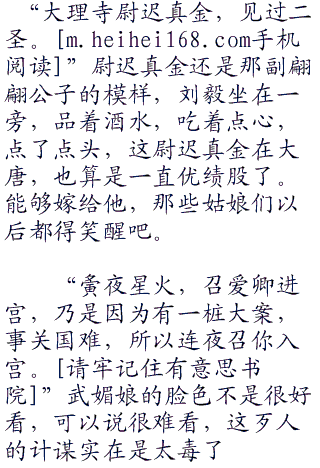 “大理寺尉迟真金，见过二
圣。[m.heihei168.com手机
阅读]”尉迟真金还是那副翩
翩公子的模样，刘毅坐在一
旁，品着酒水，吃着点心，
点了点头，这尉迟真金在大
唐，也算是一直优绩股了。
能够嫁给他，那些姑娘们以
后都得笑醒吧。
“夤夜星火，召爱卿进
宫，乃是因为有一桩大案，
事关国难，所以连夜召你入
宫。[请牢记住有意思书
院]”武媚娘的脸色不是很好
看，可以说很难看，这歹人
的计谋实在是太毒了